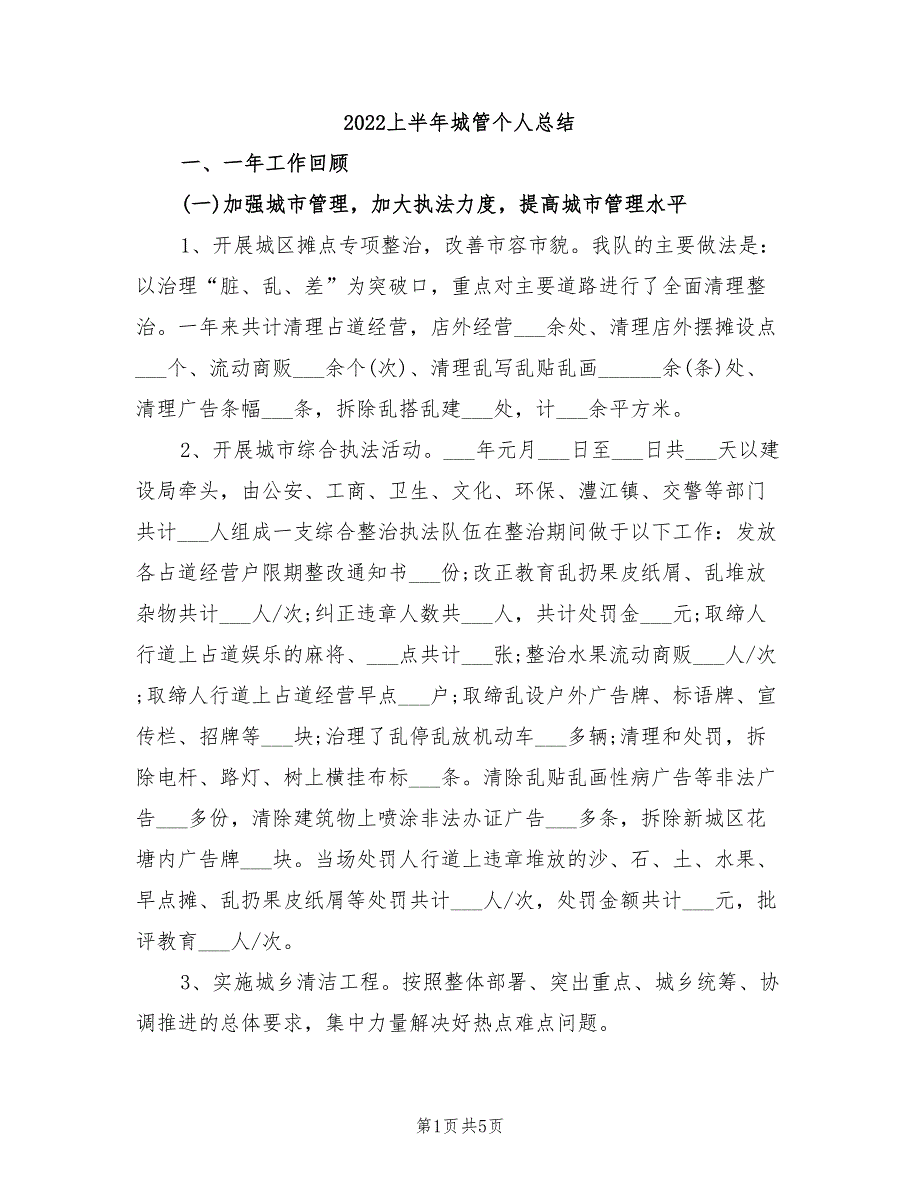 2022上半年城管个人总结
一、一年工作回顾
(一)加强城市管理，加大执法力度，提高城市管理水平
1、开展城区摊点专项整治，改善市容市貌。我队的主要做法是：
以治理“脏、乱、差”为突破口，重点对主要道路进行了全面清理整
治。一年来共计清理占道经营，店外经营___余处、清理店外摆摊设点
___个、流动商贩___余个(次)、清理乱写乱贴乱画______余(条)处、
清理广告条幅___条，拆除乱搭乱建___处，计___余平方米。
2、开展城市综合执法活动。___年元月___日至___日共___天以建
设局牵头，由公安、工商、卫生、文化、环保、澧江镇、交警等部门
共计___人组成一支综合整治执法队伍在整治期间做于以下工作：发放
各占道经营户限期整改通知书___份;改正教育乱扔果皮纸屑、乱堆放
杂物共计___人/次;纠正违章人数共___人，共计处罚金___元;取缔人
行道上占道娱乐的麻将、___点共计___张;整治水果流动商贩___人/次
;取缔人行道上占道经营早点___户;取缔乱设户外广告牌、标语牌、宣
传栏、招牌等___块;治理了乱停乱放机动车___多辆;清理和处罚，拆
除电杆、路灯、树上横挂布标___条。清除乱贴乱画性病广告等非法广
告___多份，清除建筑物上喷涂非法办证广告___多条，拆除新城区花
塘内广告牌___块。当场处罚人行道上违章堆放的沙、石、土、水果、
早点摊、乱扔果皮纸屑等处罚共计___人/次，处罚金额共计___元，批
评教育___人/次。
3、实施城乡清洁工程。按照整体部署、突出重点、城乡统筹、协
调推进的总体要求，集中力量解决好热点难点问题。
第1页共5页